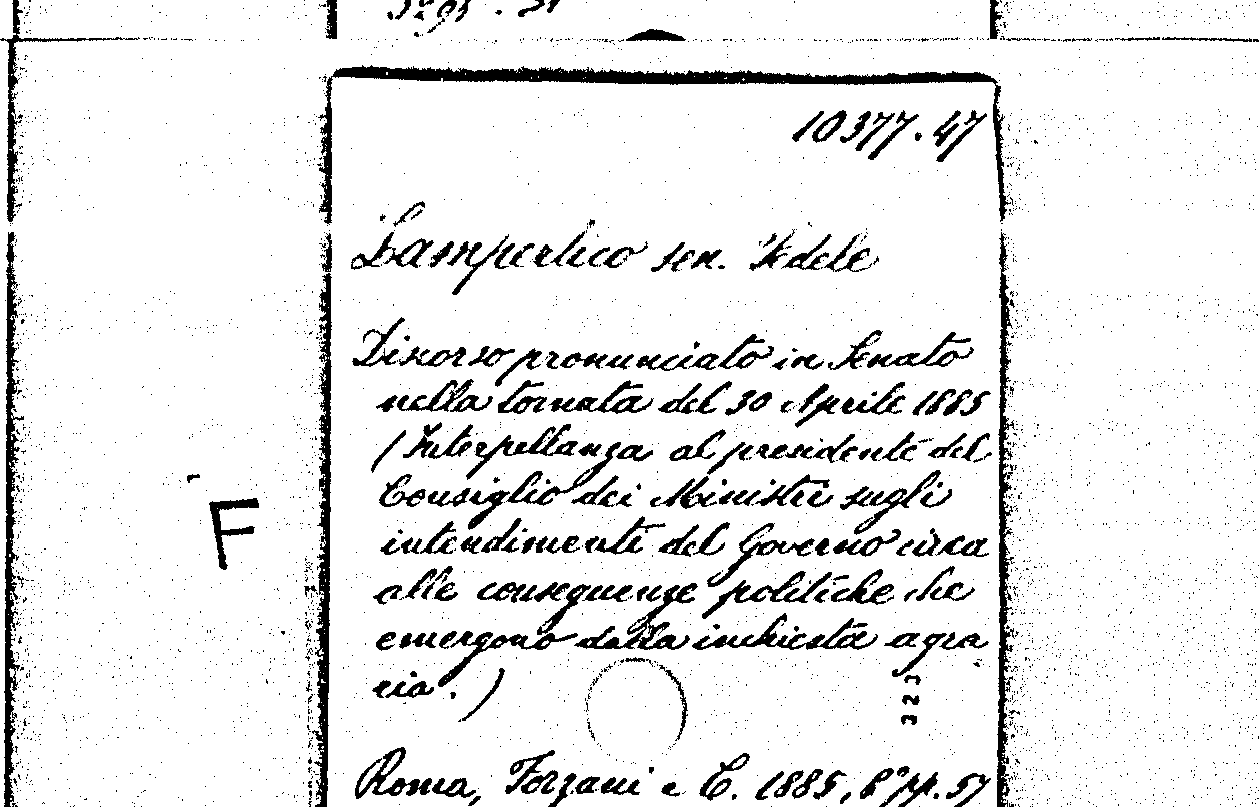 10377.47
Lampertico sen. Fedele
Discorso pronunciato in Senato
nella tornata del 30 Aprile 1885
(Interpellanza al presidente del
Consiglio dei Ministri sugli
intendimenti del Governo circa
alle conseguenze politiche che
emergono dalla inchiesta agra
ria.)
323
F
Roma, Forzani e C. 1885, 8° pp. 57